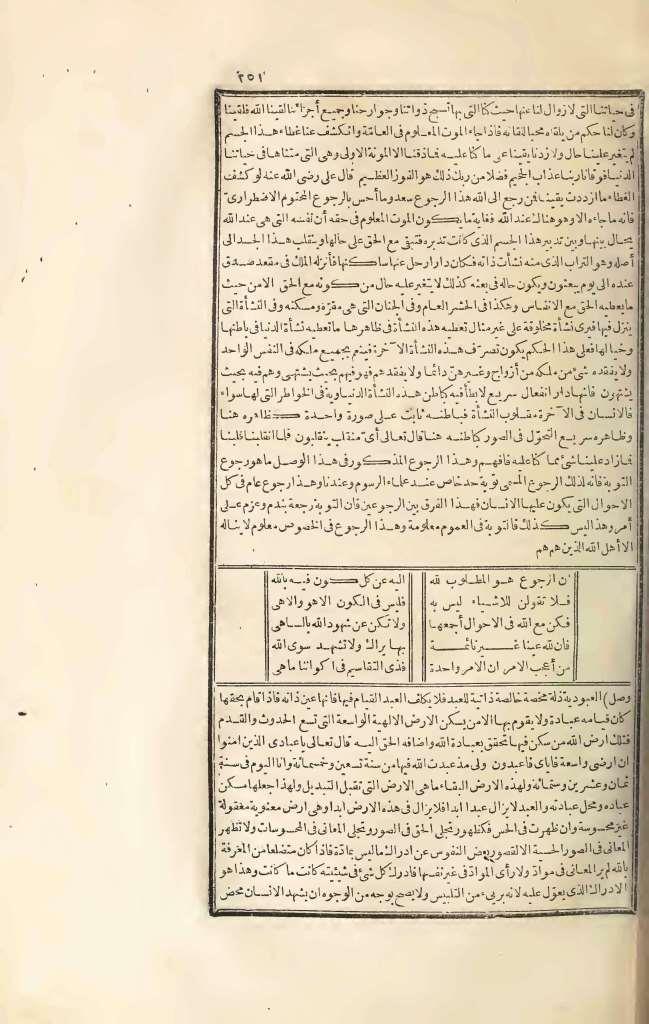 ٢٥١
فى حياتنا التى لا زوال لنا عنها حيث كنا التى بها تسبح ذواتنا وجوارحنا وجميع أجزائنا لقينا الله فلقينا
وكان لنا حكم من يلقاه محبا للقائه فاذا جاء الموت المعلوم فى العامّة وانكشف عنا غطاء هذا الجسم
لم يتغير علينا حال ولا زدنا يقينا على ما كنا عليه فما ذقنا الا الموتة الاولى وهى التى متناها فى حياتنا
الدنيا فوقانا ربنا عذاب الجحيم فضلا من ربك ذلك هو الفوز العظيم قال على رضى الله عنه لو كشف
الغطاء ما ازددت يقينا فمن رجع الى الله هذا الرجوع سعد وما أحس بالرجوع المحتوم الاضطرارىّ
فانه ما جاءه الا وهو هناك عند الله فغاية ما يكون الموت المعلوم فى حقه أن نفسه التى هى عند الله
يحال بينها وبين تدبير هذا الجسم الذى كانت تدبره فتبقى مع الحق على حالها وينقلب هذا الجسد الى
أصله وهو التراب الذى منه نشأت ذاته فكان دارا رحل عنها ساكنها فأنزله الملك فى مقعد صدق
عنده الى يوم يبعثون ويكون حاله فى بعثه كذلك لا يتغير عليه حال من كونه مع الحق لا من حيث
ما يعطيه الحق مع الانفاس وهكذا فى الحشر العام وفى الجنان التى هى مقرّه ومسكنه وفى النشأة التى
ينزل فيها فيرى نشأة مخلوقة على غير مثال تعطيه هذه النشأة فى ظاهرها ما تعطيه نشأة الدنيا فى باطنها
وخيالها فعلى هذا الحكم يكون تصرّف هذه النشأة الآخرة فينعم بجميع ملكه فى النفس الواحد
ولا يفقده شئ من ملكه من أزواج وغيرهنّ دائما ولا يفقدهم فهو فيهم بحيث يشتهى وهم فيه بحيث
يشتهون فانها دار انفعال سريع لا بطأ فيه كباطن هذه النشأة الدنياوية فى الخواطر التى لها سواء
فالانسان فى الآخرة مقلوب النشأة فباطنه ثابت على صورة واحدة كظاهره هنا
وظاهره سريع التحوّل فى الصور كباطنه هنا قال تعالى أىّ منقلب ينقلبون فلما انقلبنا قلبنا
فما زاد علينا شئ مما كنا عليه فافهم وهذا الرجوع المذكور فى هذا الوصل ما هو رجوع
التوبة فانه لذلك الرجوع المسمى توبة حد خاص عند علماء الرسوم وعندنا وهذا رجوع عام فى كل
الاحوال التى يكون عليها الانسان فهذا الفرق بين الرجوعين فان التوبة رجعة بندم وعزم على
أمر وهذا ليس كذلك فالتوبة فى العموم معلومة وهذا الرجوع فى الخصوص معلوم لا يناله
الا أهل الله الذين هم هم
ان الرجوع هو المطلوب لله اليه عن كل كون فيه بالله
فلا تقولن للاشياء ليس به فليس فى الكون الا هو والاهى
فكن مع الله فى الاحوال أجمعها ولا تكن عن شهود الله بالساهى
فان لله عينا غير نائمة بها يراك ولا تشهد سوى الله
من أعجب الامر ان الامر واحدة فذى التقاسيم فى اكواننا ماهى
وصل) العبودية ذلة محضة خالصة ذاتية للعبد فلا يكلف العبد القيام فيها فانها عين ذاته فاذا قام بحقها
كان قيامه عبادة ولا يقوم بها الا من يسكن الارض الالهية الواسعة التى تسع الحدوث والقدم
فتلك ارض الله من سكن فيها تحقق بعبادة الله واضافه الحق اليه قال تعالى يا عبادى الذين امنوا
ان ارضى واسعة فاياى فاعبدون ولى مذ عبدت الله فيها من سنة تسعين وخمسمائة وانا اليوم فى سنة
ثمان وعشرين وستمائة ولهذه الارض البقاء ما هى الارض التى تقبل التبديل ولهذا جعلها مسكن
عباده ومحل عبادته والعبد لا يزال عبدا ابدا فلا يزال فى هذه الارض ابدا وهى ارض معنوية معقولة
غير محسوسة وان ظهرت فى الحس فكظهور تجلى الحق فى الصور وتجلى المعانى فى المحسوسات ولا تظهر
المعانى فى الصور الحسية الا لقصور بعض النفوس عن ادراك ما ليس بمادة فاذا كان متضلعا من المعرفة
بالله لم ير المعانى فى موادّ ولا رأى الموادّ فى غير نفسها فادرك كل شئ فى شيئيته كانت ما كانت وهذا هو
الادراك الذى يعوّل عليه لانه برىء من التلبيس ولا يصح بوجه من الوجوه ان يشهد الانسان محض